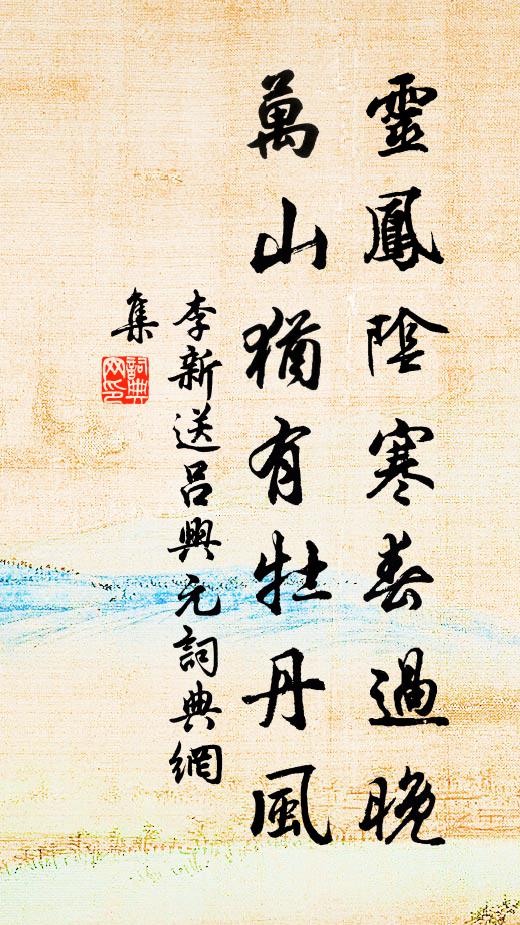 靈鳳陰寒春過晚
萬山猶有牡丹風
李新送呂興元詞典網
集
詞典
网印